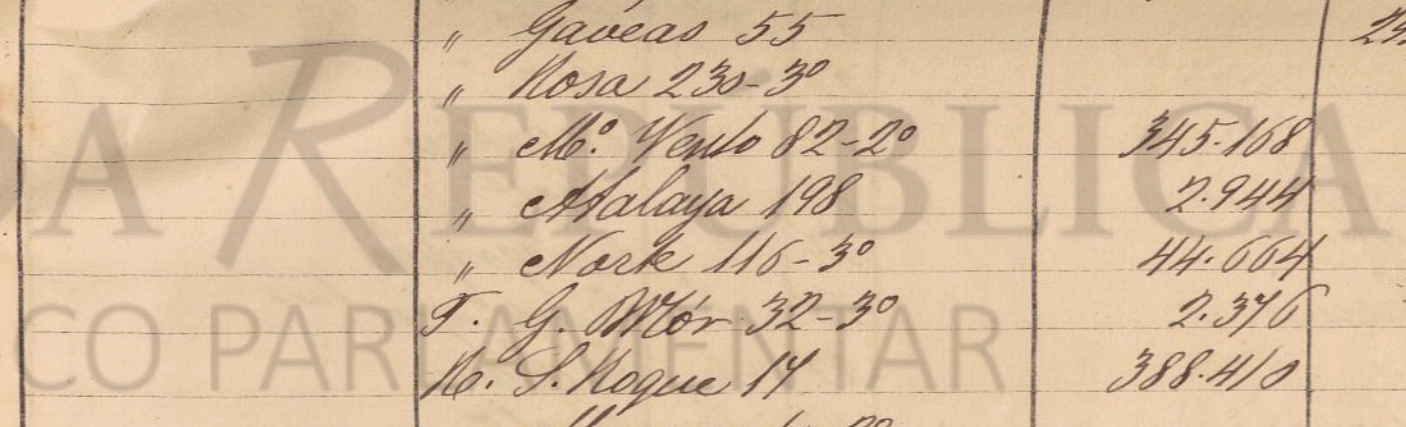 " Gaveas 55
" Rosa 230-3º
" Mº. Vento 82-2º 345.168
" Atalaya 198 2.944
" Norte 116-3º 44.664
T. G. Mór 32-3º 2.376
R. S. Roque 17 388.410
DA REPUBLICA
CO PARLAMENTAR